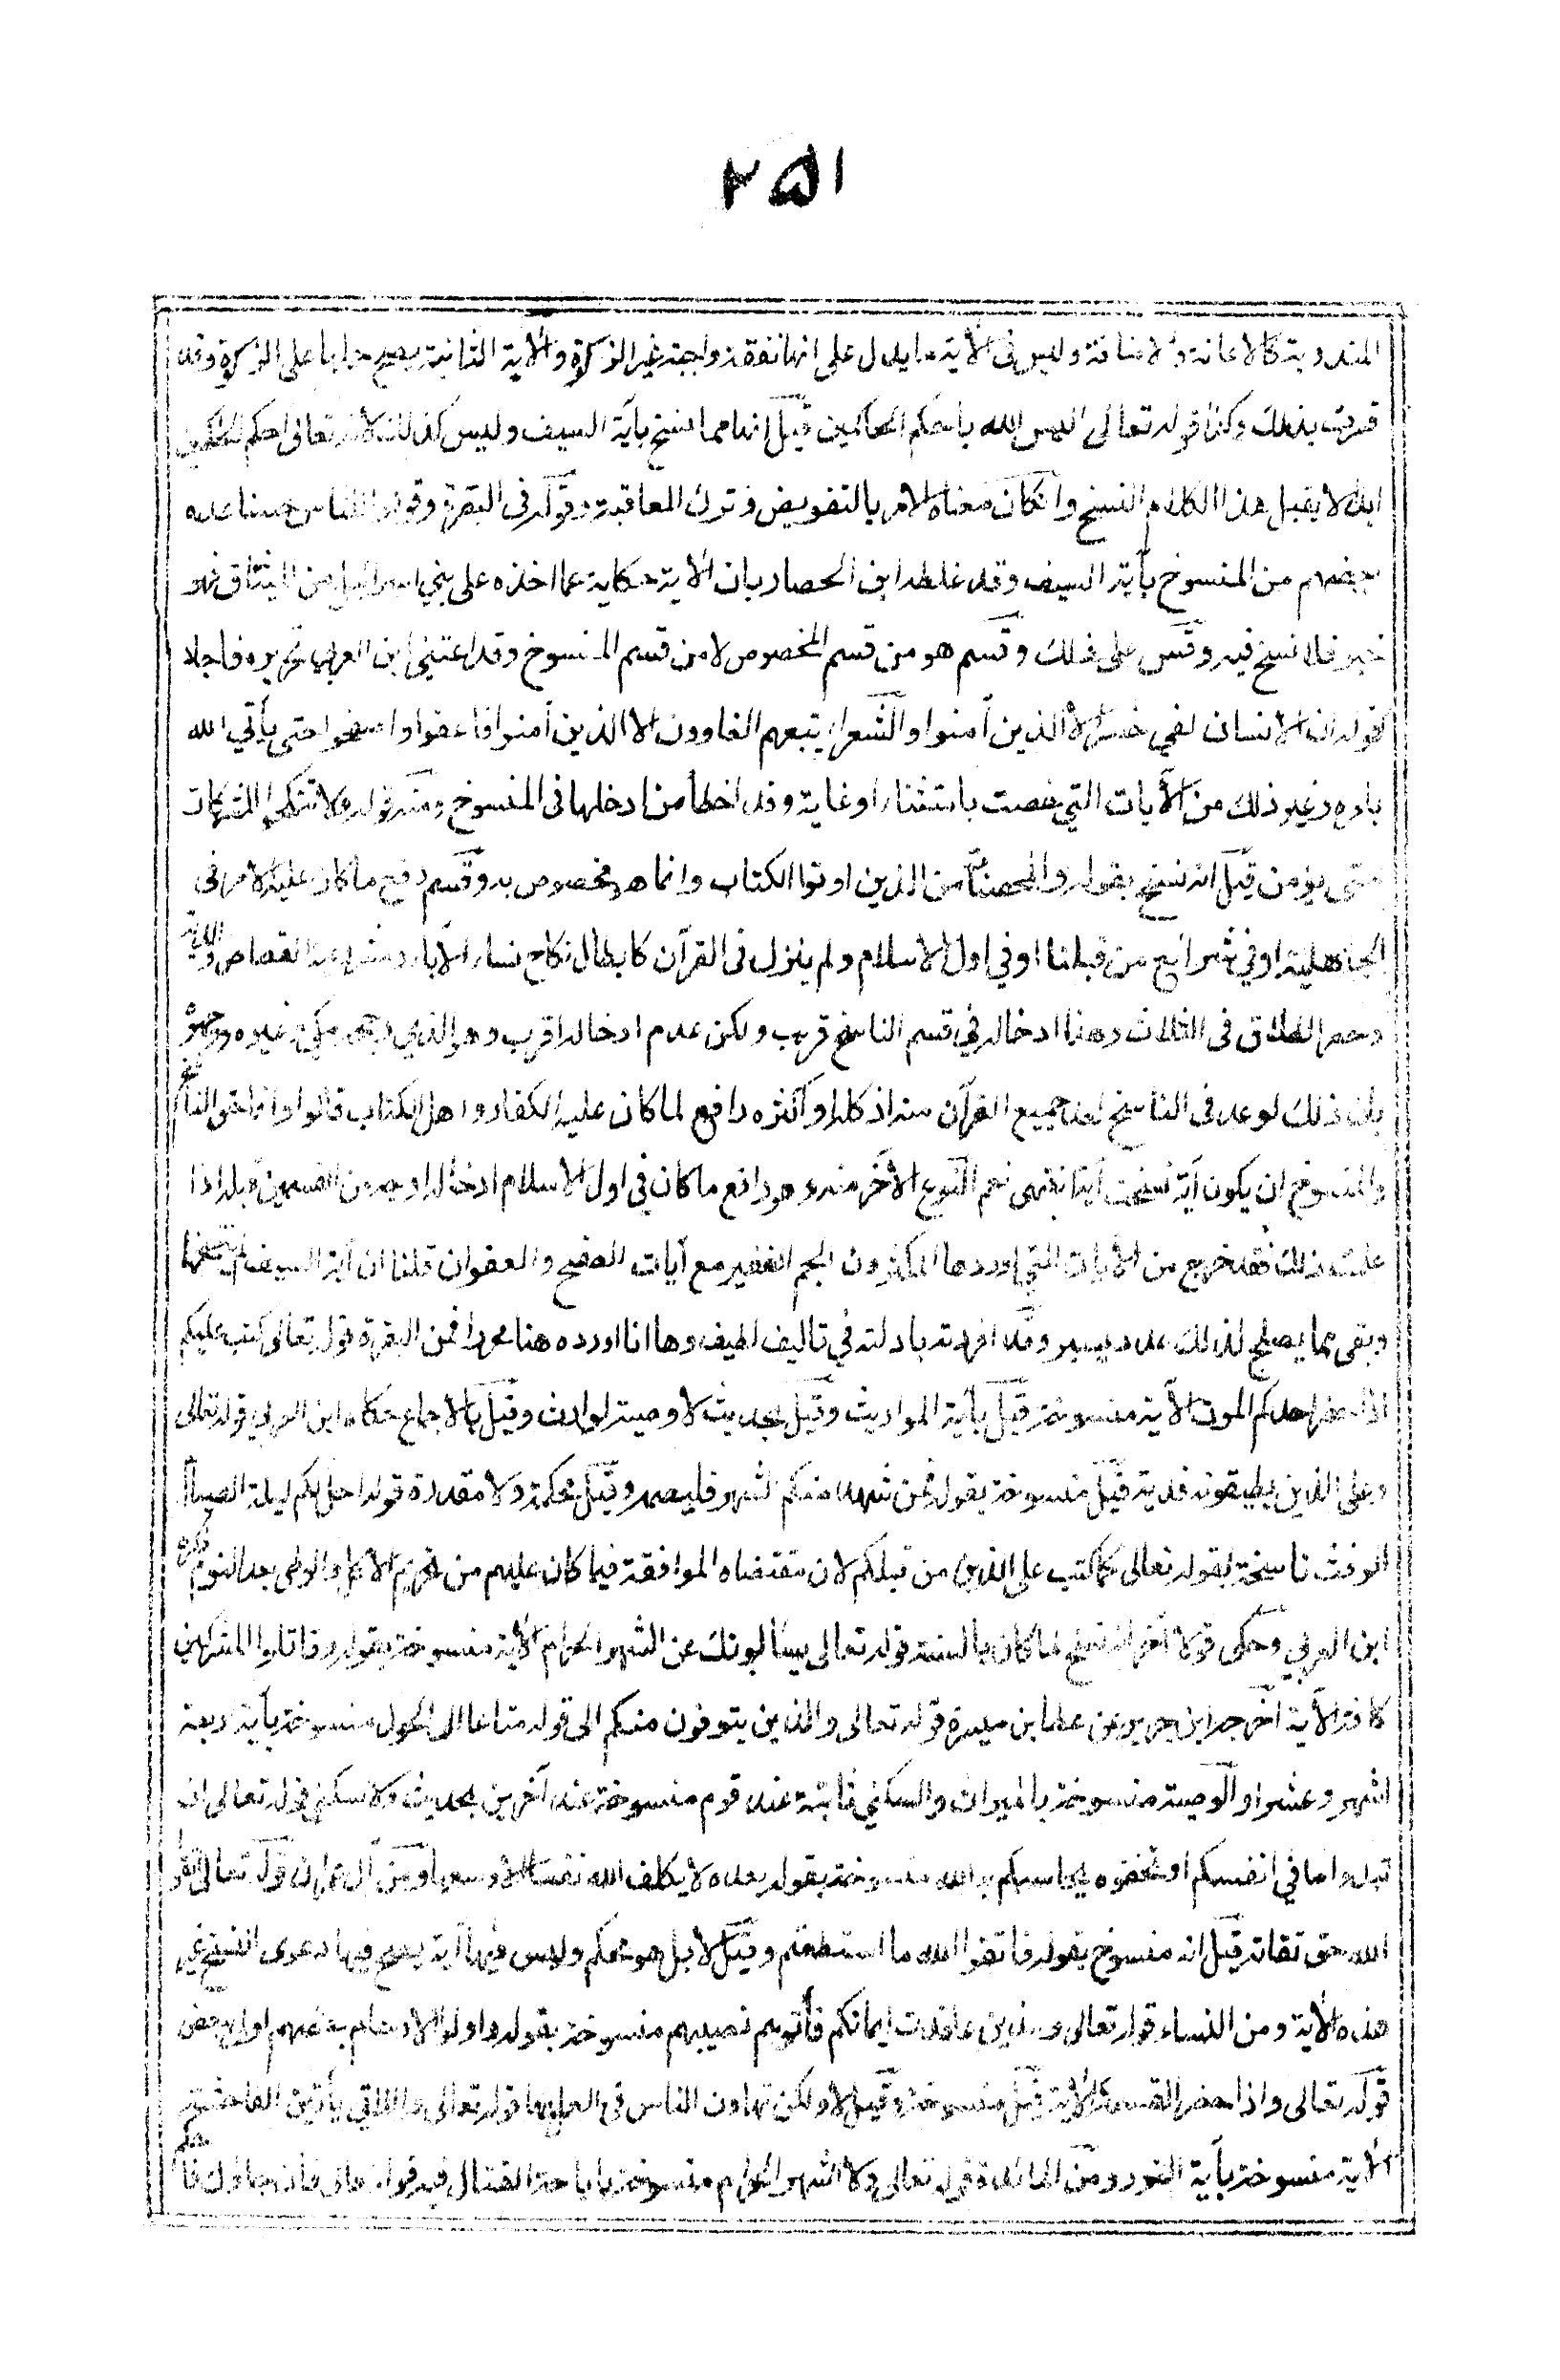 ٢٥١
المندوبة كالاعانة والاضافة وليس فى الآية ما يدل على انها نفقة واجبة غير الزكوة والآية الثانية يصح حملها على الزكوة وقد
فسرت بذلك وكذا قوله تعالى اليس الله باحكم الحاكمين قيل انها مما نسخ بآية السيف وليس كذلك لانه تعالى احكم الحاكمين
ابدا لا يقبل هذا الكلام النسخ وان كان معناه الامر بالتفويض وترك المعاقبة وقوله فى البقرة وقولوا للناس حسنا عده
بعضهم من المنسوخ بآية السيف وقد غلطه ابن الحصار بان الآية حكاية عما اخذه على بني اسرائيل من الميثاق فهو
خبر فلا نسخ فيه وقس على ذلك وقسم هو من قسم المخصوص لا من قسم المنسوخ وقد اعتنى ابن العربي بتحريره فاجاد
كقوله ان الانسان لفي خسر الا الذين آمنوا والشعراء يتبعهم الغاوون الا الذين آمنوا فاعفوا واصفحوا حتى يأتي الله
بامره وغير ذلك من الآيات التي خصت باستثناء او غاية وقد اخطأ من ادخلها فى المنسوخ ومنه قوله ولا تنكحوا المشركات
حتى يؤمن قيل انه نسخ بقوله والمحصنات من الذين اوتوا الكتاب وانما هو مخصوص به وقسم رفع ما كان عليه الامر فى
الجاهلية او في شرائع من قبلنا او في اول الاسلام ولم ينزل فى القرآن كابطال نكاح نساء الآباء ومشروعية القصاص والدية
وحصر الطلاق فى الثلاث وهذا ادخاله في قسم الناسخ قريب ولكن عدم ادخاله اقرب وهو الذي رجحه مكي وغيره ووجهوه
بان ذلك لو عد فى الناسخ لعد جميع القرآن منه اذ كله او اكثره رافع لما كان عليه الكفار واهل الكتاب قالوا وانما حق الناسخ
والمنسوخ ان يكون آية نسخت آية انتهى نعم النوع الآخر منه وهو رافع ما كان في اول الاسلام ادخاله اوجه من القسمين قبله اذا
علمت ذلك فقد خرج من الآيات التي اوردها المكثرون الجم الغفير مع آيات الصفح والعفو ان قلنا ان آية السيف لم تنسخها
وبقى مما يصلح لذلك عدد يسير وقد افردته بادلته في تاليف لطيف وها انا اورده هنا محررا فمن البقرة قوله تعالى كتب عليكم
اذا حضر احدكم الموت الآية منسوخة قيل بآية المواريث وقيل بحديث لا وصية لوارث وقيل بالاجماع حكاه ابن العربي قوله تعالى
وعلى الذين يطيقونه فدية قيل منسوخة بقوله فمن شهد منكم الشهر فليصمه وقيل محكمة ولا مقدرة قوله احل لكم ليلة الصيام
الرفث ناسخة لقوله تعالى كما كتب على الذين من قبلكم لان مقتضاه الموافقة فيما كان عليهم من تحريم الاكل والوطى بعد النوم ذكره
ابن العربي وحكى قولا آخر انه نسخ لما كان بالسنة قوله تعالى يسألونك عن الشهر الحرام الآية منسوخة بقوله وقاتلوا المشركين
كافة الآية اخرجه ابن جرير عن عطا بن ميسرة قوله تعالى والذين يتوفون منكم الى قوله متاعا الى الحول منسوخة بآية اربعة
اشهر وعشرا والوصية منسوخة بالميراث والسكنى ثابتة عند قوم منسوخة عند آخرين بحديث ولا سكنى قوله تعالى ان
تبدوا ما في انفسكم او تخفوه يحاسبكم به الله منسوخة بقوله بعده لا يكلف الله نفسا الا وسعها ومن آل عمران قوله تعالى اتقوا
الله حق تقاته قيل انه منسوخ بقوله فاتقوا الله ما استطعتم وقيل لا بل هو محكم وليس فيها آية يصح فيها دعوى النسخ غير
هذه الآية ومن النساء قوله تعالى والذين عاقدت ايمانكم فآتوهم نصيبهم منسوخة بقوله واولوا الارحام بعضهم اولى ببعض
قوله تعالى واذا حضر القسمة الآية قيل منسوخة وقيل لا ولكن تهاون الناس فى العمل بها قوله تعالى واللاتي يأتين الفاحشة
الآية منسوخة بآية النور ومن المائدة قوله تعالى ولا الشهر الحرام منسوخة باباحة القتال فيه قوله تعالى فان جاؤك فاحكم